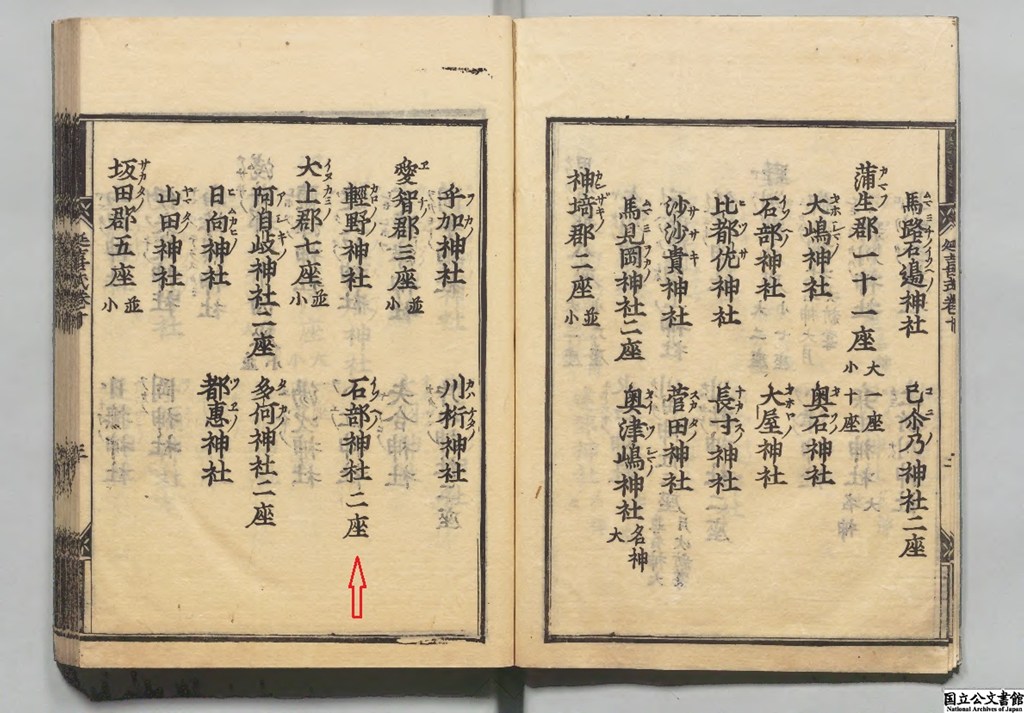 馬路石邉神社 巳尒乃神社二座
蒲生郡一十一座 大一座 小十座
大嶋神社 奥石神社
石部神社 大屋神社
比都佐神社 長寸神社
沙沙貴神社 菅田神社
馬見岡神社二座 奥津嶋神社 名神大
神埼郡二座 並小
乎加神社 川桁神社
愛智郡三座 並小
輕野神社 石部神社二座
犬上郡七座 並小
阿自岐神社二座 多何神社二座
日向神社 都惠神社
山田神社
坂田郡五座 並小
延喜式卷十
国立公文書館
National Archives of Japan